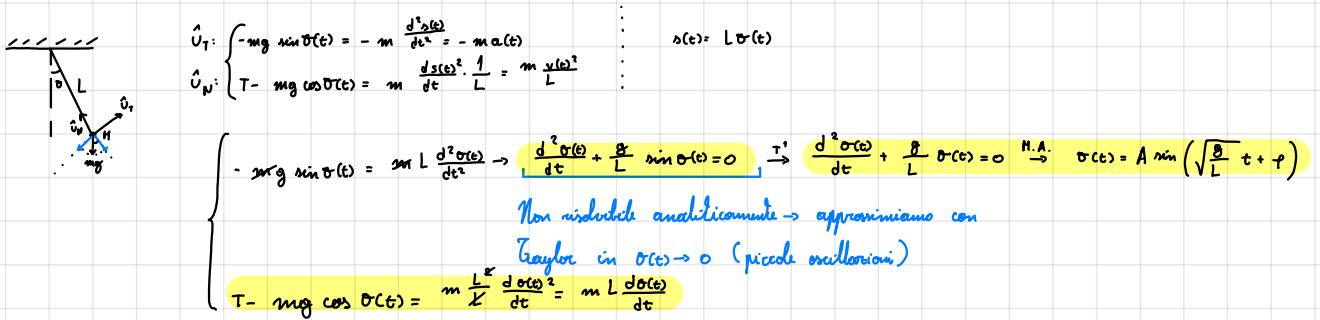 û_T: { -mg sin θ(t) = - m d²s(t)/dt² = - m a(t)
s(t) = L θ(t)
û_N: { T - mg cos θ(t) = m ds(t)²/dt · 1/L = m v(t)²/L
θ L
û_T
û_N M
mg
- mg sin θ(t) = m L d²θ(t)/dt² → d²θ(t)/dt + g/L sin θ(t) = 0 T' → d²θ(t)/dt + g/L θ(t) = 0 M.A. → θ(t) = A sin (√(g/L) t + φ)
Non risolvibile analiticamente → approssimiamo con
Taylor in θ(t) → 0 (piccole oscillazioni)
T - mg cos θ(t) = m L²/L dθ(t)²/dt = m L dθ(t)/dt